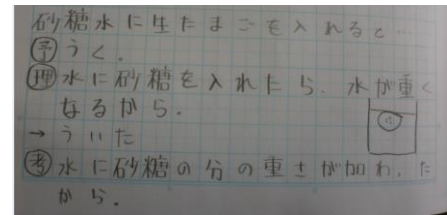 砂糖水に生たまごを入れると…
予 うく。
理 水に砂糖を入れたら、水が重く
なるから。
→ ういた
考 水に砂糖の分の重さが加わった
から。